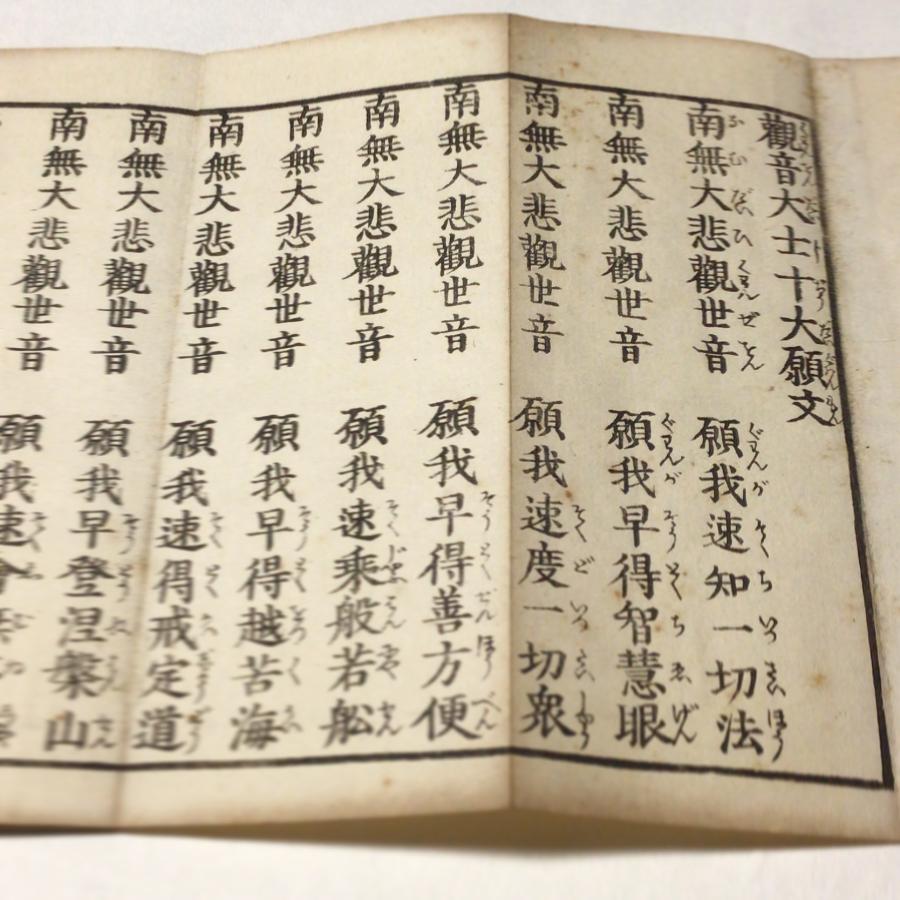 觀音大士十大願文
南無大悲觀世音 願我速知一切法
南無大悲觀世音 願我早得智慧眼
南無大悲觀世音 願我速度一切衆
南無大悲觀世音 願我早得善方便
南無大悲觀世音 願我速乘般若船
南無大悲觀世音 願我早得越苦海
南無大悲觀世音 願我速得戒定道
南無大悲觀世音 願我早登涅槃山
南無大悲觀世音 願我速會